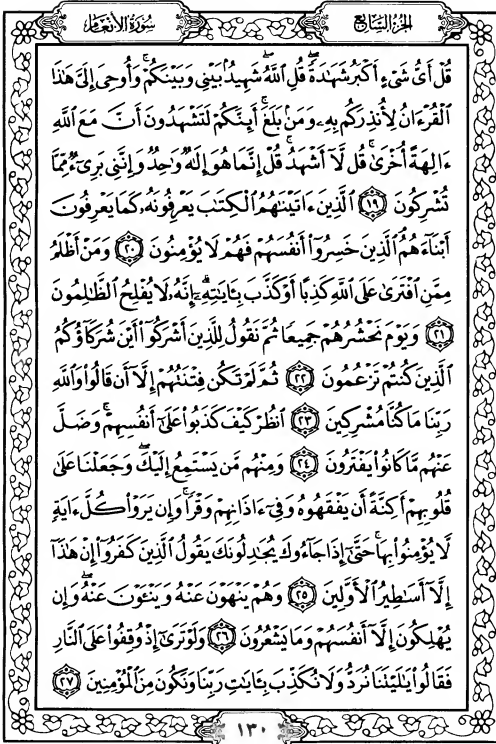 سُورَةُ الأَنعَامِ
الجُزءُ السَّابِعُ
قُلْ أَىُّ شَىْءٍ أَكْبَرُ شَهَٰدَةً ۖ قُلِ ٱللَّهُ ۖ شَهِيدٌۢ بَيْنِى وَبَيْنَكُمْ ۚ وَأُوحِىَ إِلَىَّ هَٰذَا
ٱلْقُرْءَانُ لِأُنذِرَكُم بِهِۦ وَمَنۢ بَلَغَ ۚ أَئِنَّكُمْ لَتَشْهَدُونَ أَنَّ مَعَ ٱللَّهِ
ءَالِهَةً أُخْرَىٰ ۚ قُل لَّآ أَشْهَدُ ۚ قُلْ إِنَّمَا هُوَ إِلَٰهٌ وَٰحِدٌ وَإِنَّنِى بَرِىٓءٌ مِّمَّا
تُشْرِكُونَ ١٩ ٱلَّذِينَ ءَاتَيْنَٰهُمُ ٱلْكِتَٰبَ يَعْرِفُونَهُۥ كَمَا يَعْرِفُونَ
أَبْنَآءَهُمُ ٱلَّذِينَ خَسِرُوٓا۟ أَنفُسَهُمْ فَهُمْ لَا يُؤْمِنُونَ ٢٠ وَمَنْ أَظْلَمُ
مِمَّنِ ٱفْتَرَىٰ عَلَى ٱللَّهِ كَذِبًا أَوْ كَذَّبَ بِـَٔايَٰتِهِۦٓ ۗ إِنَّهُۥ لَا يُفْلِحُ ٱلظَّٰلِمُونَ
٢١ وَيَوْمَ نَحْشُرُهُمْ جَمِيعًا ثُمَّ نَقُولُ لِلَّذِينَ أَشْرَكُوٓا۟ أَيْنَ شُرَكَآؤُكُمُ
ٱلَّذِينَ كُنتُمْ تَزْعُمُونَ ٢٢ ثُمَّ لَمْ تَكُن فِتْنَتُهُمْ إِلَّآ أَن قَالُوا۟ وَٱللَّهِ
رَبِّنَا مَا كُنَّا مُشْرِكِينَ ٢٣ ٱنظُرْ كَيْفَ كَذَبُوا۟ عَلَىٰٓ أَنفُسِهِمْ ۚ وَضَلَّ
عَنْهُم مَّا كَانُوا۟ يَفْتَرُونَ ٢٤ وَمِنْهُم مَّن يَسْتَمِعُ إِلَيْكَ ۖ وَجَعَلْنَا عَلَىٰ
قُلُوبِهِمْ أَكِنَّةً أَن يَفْقَهُوهُ وَفِىٓ ءَاذَانِهِمْ وَقْرًا ۚ وَإِن يَرَوْا۟ كُلَّ ءَايَةٍ
لَّا يُؤْمِنُوا۟ بِهَا ۚ حَتَّىٰٓ إِذَا جَآءُوكَ يُجَٰدِلُونَكَ يَقُولُ ٱلَّذِينَ كَفَرُوٓا۟ إِنْ هَٰذَآ
إِلَّآ أَسَٰطِيرُ ٱلْأَوَّلِينَ ٢٥ وَهُمْ يَنْهَوْنَ عَنْهُ وَيَنْـَٔوْنَ عَنْهُ ۖ وَإِن
يُهْلِكُونَ إِلَّآ أَنفُسَهُمْ وَمَا يَشْعُرُونَ ٢٦ وَلَوْ تَرَىٰٓ إِذْ وُقِفُوا۟ عَلَى ٱلنَّارِ
فَقَالُوا۟ يَٰلَيْتَنَا نُرَدُّ وَلَا نُكَذِّبَ بِـَٔايَٰتِ رَبِّنَا وَنَكُونَ مِنَ ٱلْمُؤْمِنِينَ ٢٧
١٣٠